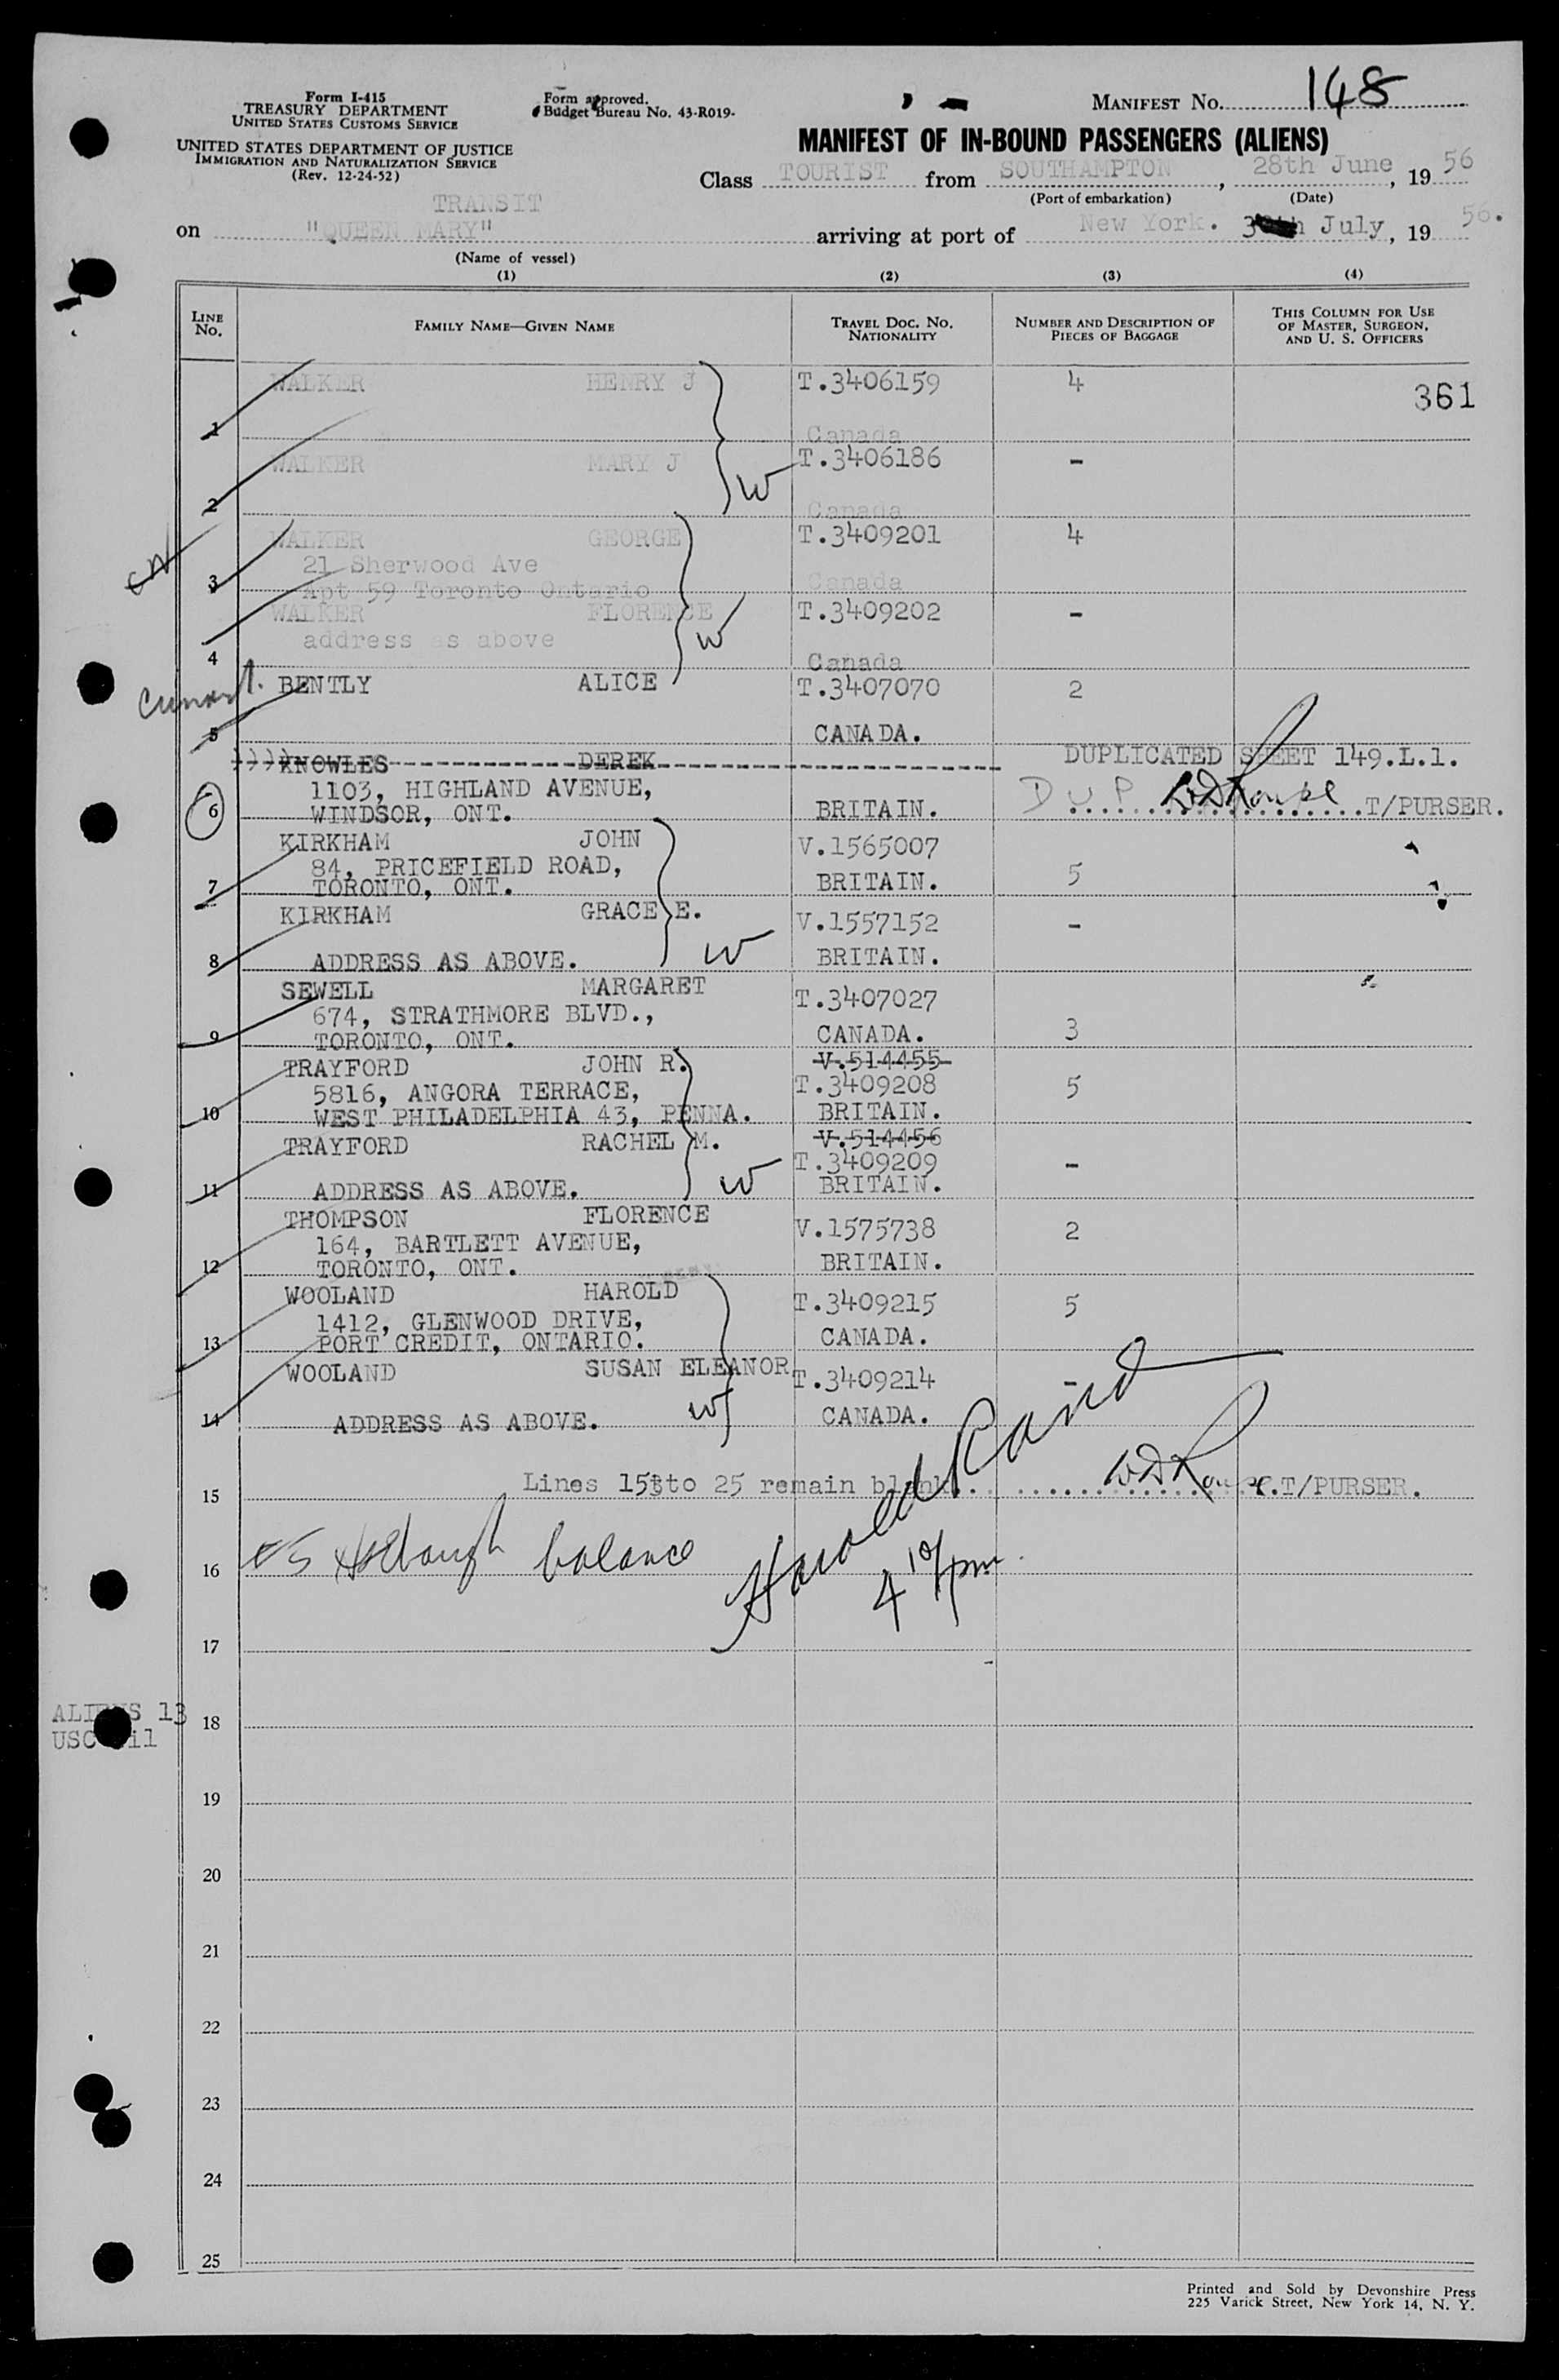 Form I-415
TREASURY DEPARTMENT
UNITED STATES CUSTOMS SERVICE
UNITED STATES DEPARTMENT OF JUSTICE
IMMIGRATION AND NATURALIZATION SERVICE
(Rev. 12-24-52)
Form approved.
Budget Bureau No. 43-R019-
MANIFEST NO. 148
MANIFEST OF IN-BOUND PASSENGERS (ALIENS)
Class TOURIST from SOUTHAMPTON, 28th June, 19 56
(Port of embarkation) (Date)
TRANSIT
on "QUEEN MARY" arriving at port of New York. July, 19 56.
(Name of vessel)
(1) (2) (3) (4)
LINE NO. FAMILY NAME—GIVEN NAME TRAVEL DOC. NO. NATIONALITY NUMBER AND DESCRIPTION OF PIECES OF BAGGAGE THIS COLUMN FOR USE OF MASTER, SURGEON, AND U. S. OFFICERS
WALKER HENRY J T.3406159 4 361
1 Canada
WALKER MARY J T.3406186 -
W
2 Canada
WALKER GEORGE T.3409201 4
21 Sherwood Ave
3 Apt 59 Toronto Ontario Canada
WALKER FLORENCE T.3409202 -
address as above W
4 Canada
Cunard. BENTLY ALICE T.3407070 2
5 CANADA.
KNOWLES DEREK DUPLICATED SHEET 149.L.1.
1103, HIGHLAND AVENUE,
6 WINDSOR, ONT. BRITAIN. DUP T/PURSER.
KIRKHAM JOHN V.1565007
84, PRICEFIELD ROAD,
7 TORONTO, ONT. BRITAIN. 5
KIRKHAM GRACE E. V.1557152 -
W
8 ADDRESS AS ABOVE. BRITAIN.
SEWELL MARGARET T.3407027
674, STRATHMORE BLVD.,
9 TORONTO, ONT. CANADA. 3
TRAYFORD JOHN R. V.514455
5816, ANGORA TERRACE, T.3409208 5
10 WEST PHILADELPHIA 43, PENNA. BRITAIN.
TRAYFORD RACHEL M. V.514456
T.3409209 -
11 ADDRESS AS ABOVE. W BRITAIN.
THOMPSON FLORENCE V.1575738 2
164, BARTLETT AVENUE,
12 TORONTO, ONT. BRITAIN.
WOOLAND HAROLD T.3409215 5
1412, GLENWOOD DRIVE,
13 PORT CREDIT, ONTARIO. CANADA.
WOOLAND SUSAN ELEANOR T.3409214 -
14 ADDRESS AS ABOVE. W CANADA.
15 Lines 15 to 25 remain blank. T/PURSER.
16 balance Harold
4 10/pm
17
ALIENS 13
18
USC nil
19
20
21
22
23
24
25
Printed and Sold by Devonshire Press
225 Varick Street, New York 14, N. Y.